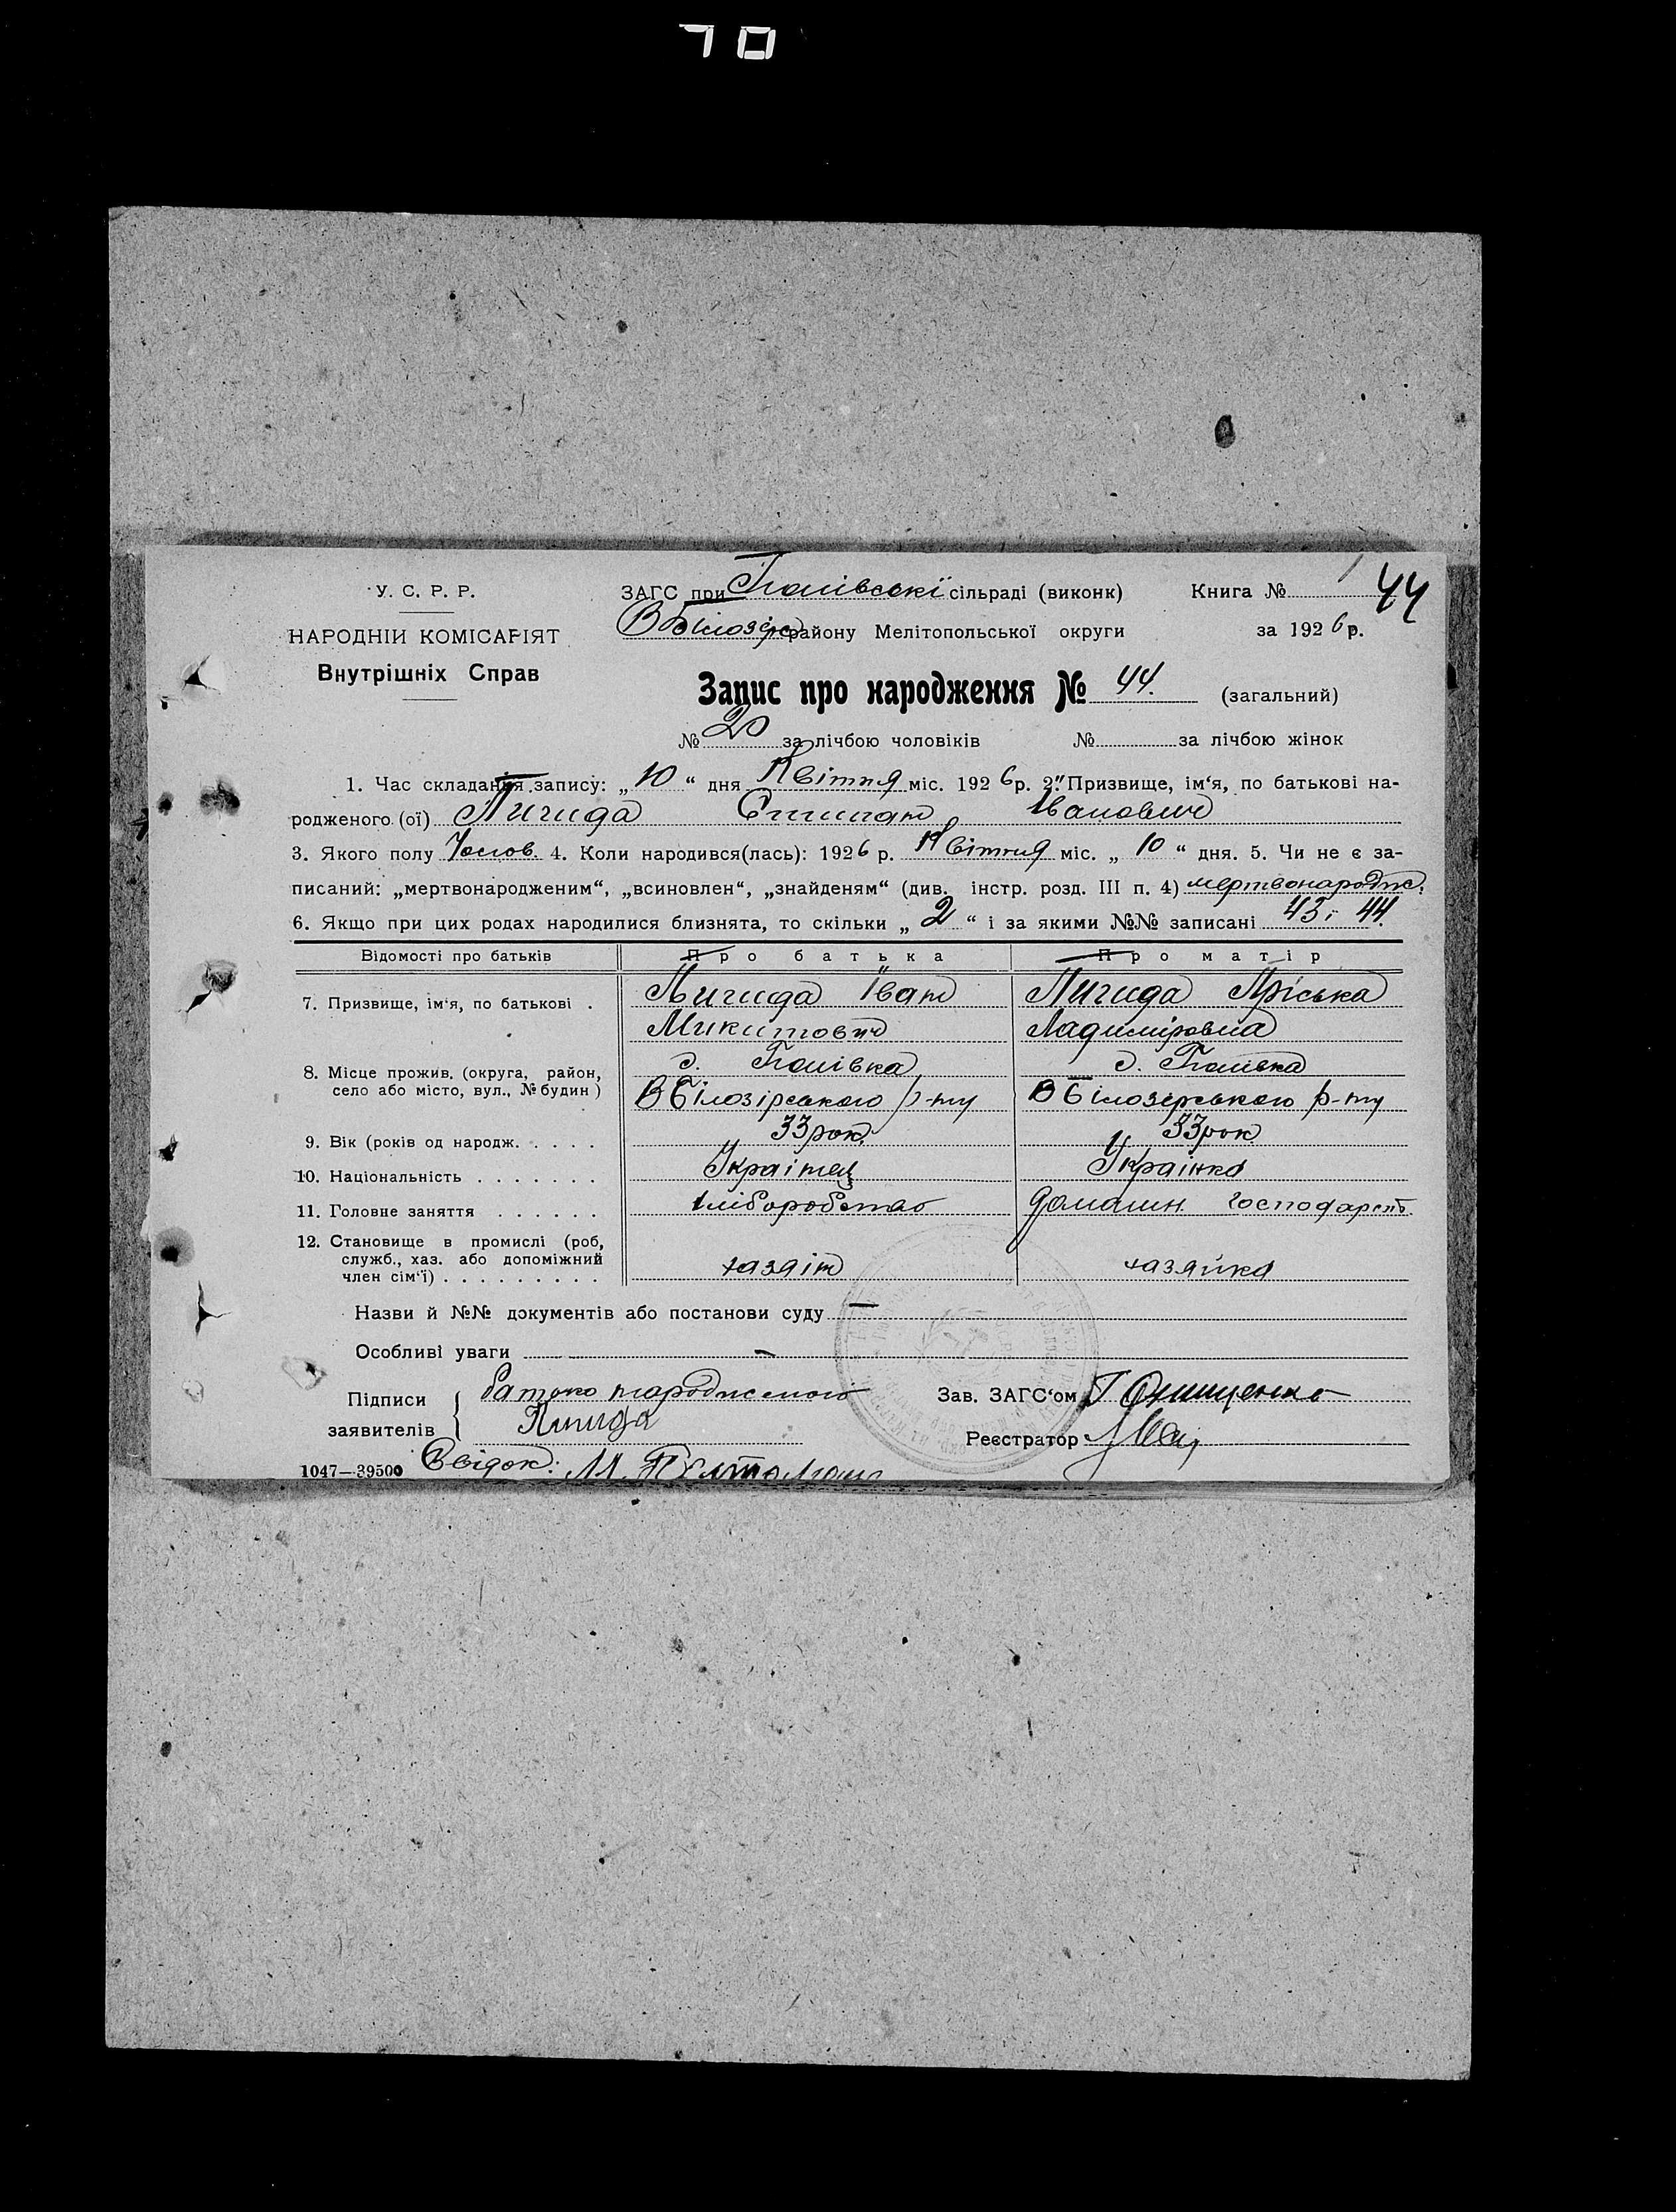 70
У. С. Р. Р.
НАРОДНІЙ КОМІСАРІЯТ
Внутрішніх Справ
ЗАГС при сільраді (виконк) Книга № 44
В Білозерс району Мелітопольської округи за 1926 р.
Запис про народження № 44. (загальний)
№ 20 за лічбою чоловіків № за лічбою жінок
1. Час складання запису: „10“ дня Квітня міс. 1926 р. 2. Призвище, ім‘я, по батькові на-
родженого (ої) Іванович
3. Якого полу Чолов. 4. Коли народився(лась): 1926 р. Квітня міс. „10“ дня. 5. Чи не є за-
писаний: „мертвонародженим“, „всиновлен“, „знайденям“ (див. інстр. розд. III п. 4) мертвонародж.
6. Якщо при цих родах народилися близнята, то скільки „2“ і за якими №№ записані 43 і 44.
Відомості про батьків Про батька Про матір
7. Призвище, ім‘я, по батькові . Іван
Микитович
8. Місце прожив. (округа, район, с. с.
село або місто, вул., № будин) В Білозірського р-ну В Білозерського р-ну
9. Вік (років од народж. . . . . 33 рок. 33 рок.
10. Національність . . . . . . . Українец Українка
11. Головне заняття . . . . . . хліборобство домашн. господарств.
12. Становище в промислі (роб,
служб., хаз. або допоміжний хазяін хазяйка
член сім‘ї) . . . . . . . . .
Назви й №№ документів або постанови суду —
Особливі уваги —
Підписи батько народженого Зав. ЗАГС‘ом Г Онищенко
заявителів Реєстратор
1047—39500 Свідок: М.